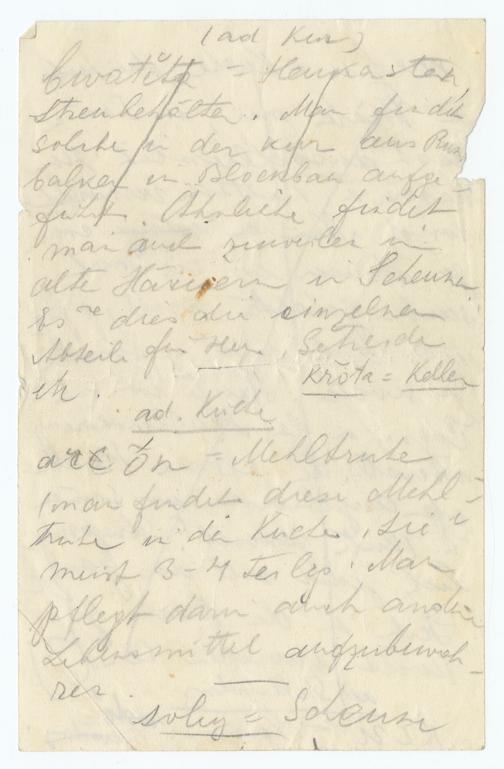 (ad Kur)
= Heukasten,
Streubehälter. Man findet
solche in der Kur aus Rund
balken in Blockbau aufge-
führt. Ähnliche findet
man auch zuweilen in
alte Häusern in Scheunen
Es dies die einzelnen
Abteile für Heu, Getreide
etc.
Kròta = Keller
ad. Küche
= Mehltruhe
(man findet diese Mehl-
truhe in der Küche, sie
meist 3-4 teilig. Man
pflegt darin auch andere
Lebensmittel aufzubewah-
ren.
= Scheune